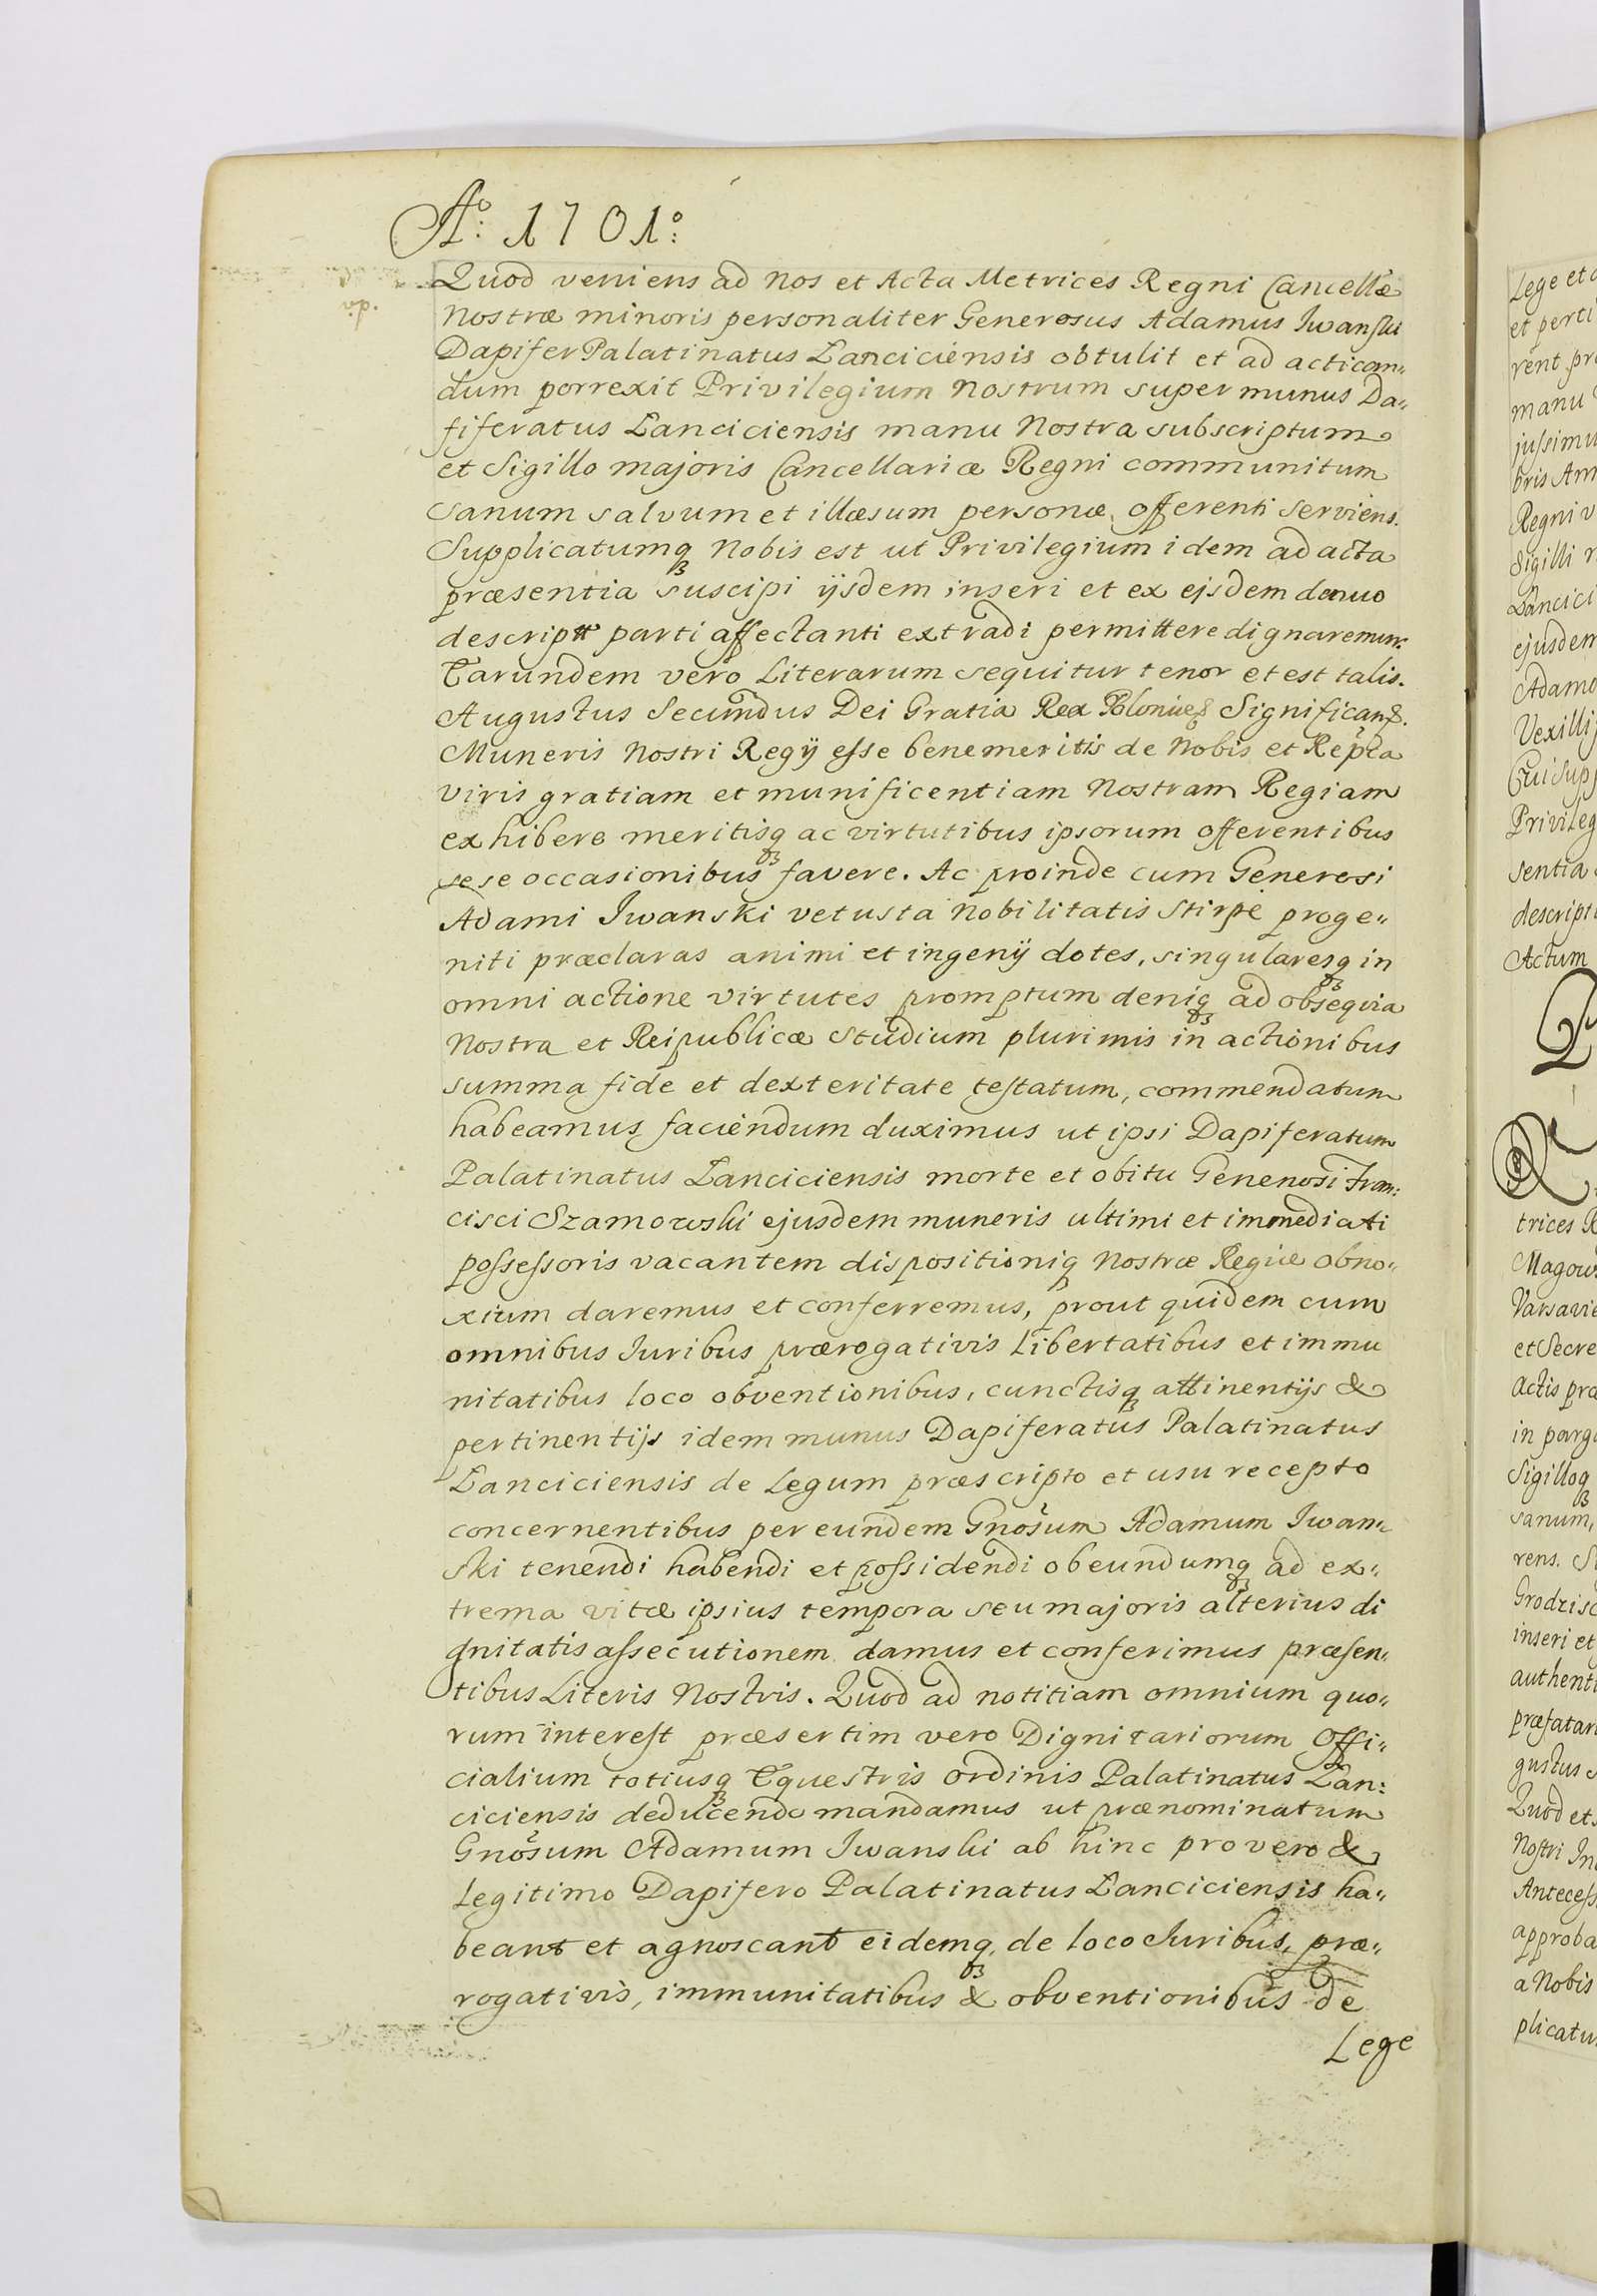 Aº: 1701º:
Quod veniens ad Nos et Acta Metrices Regni Cancellæ
Nostræ minoris personaliter Generosus Adamus Iwanski
Dapifer Palatinatus Lanciciensis obtulit et ad actican„
dum porrexit Privilegium Nostrum super munus Da„
fiferatus Lanciciensis manu Nostra subscriptum
et Sigillo majoris Cancellariæ Regni communitum
sanum salvum et illæsum personæ offerenti serviens.
Supplicatumq₃ Nobis est ut Privilegium idem ad acta
præsentia suscipi ijsdem inseri et ex ejsdem denuo
descriptt parti affectanti extradi permittere dignaremur.
Earundem vero Literarum sequitur tenor et est talis.
Augustus Secundus Dei Gratia Rex Poloniæ& Significan&.
Muneris Nostri Regij esse benemeritis de Nobis et Repca
viris gratiam et munificentiam Nostram Regiam
exhibere meritisq₃ ac virtutibus ipsorum offerentibus
sese occasionibus favere. Ac proinde cum Generosi
Adami Iwanski vetusta Nobilitatis Stirpe proge„
niti præclaras animi et ingenij dotes, singularesq₃ in
omni actione virtutes promptum deniq₃ ad obsequia
Nostra et Reipublicæ Studium plurimis in actionibus
summa fide et dexteritate testatum, commendatum
habeamus faciendum duximus ut ipsi Dapiferatum
Palatinatus Lanciciensis morte et obitu Generosi Fran:
cisci Szamowski ejusdem muneris ultimi et immediati
possessoris vacantem dispositioniq₃ Nostræ Regiæ obno„
xium daremus et conferremus, prout quidem cum
omnibus Iuribus prærogativis Libertatibus et immu
nitatibus loco obventionibus, cunctisq₃ attinentijs &
pertinentijs idem munus Dapiferatus Palatinatus
Lanciciensis de Legum præscripto et usu recepto
concernentibus per eundem Gnosum Adamum Iwan„
ski tenendi habendi et possidendi obeundumq₃ ad ex„
trema vitæ ipsius tempora seu majoris alterius di
gnitatis assecutionem damus et conferimus præsen„
tibus Literis Nostris. Quod ad notitiam omnium quo„
rum interest præsertim vero Dignitariorum Offi„
cialium totiusq₃ Equestris ordinis Palatinatus Lan:
ciciensis deducendo mandamus ut prænominatum
Gnosum Adamum Iwanski ab hinc pro vero &
Legitimo Dapifero Palatinatus Lanciciensis ha„
beant et agnoscant eidemq₃ de loco Iuribus, præ„
rogativis, immunitatibus & obventionibus de
Lege
Lege et
et perti
rent pr
manu
jussimu
bris An
Regni v
Sigilli
Lancici
ejusdem
Adamo
Vexillij
Cui Sup
Privileg
sentia
descript
Actum
trices R
Magow
Varsavie
et Secre
Actis præ
in parg
Sigilloq₃
sanum,
rens.
Grodzisc
inseri et
authenti
præfatar
gustus
Quod et
Nostri In
Antecess
approba
a Nobis
plicatu